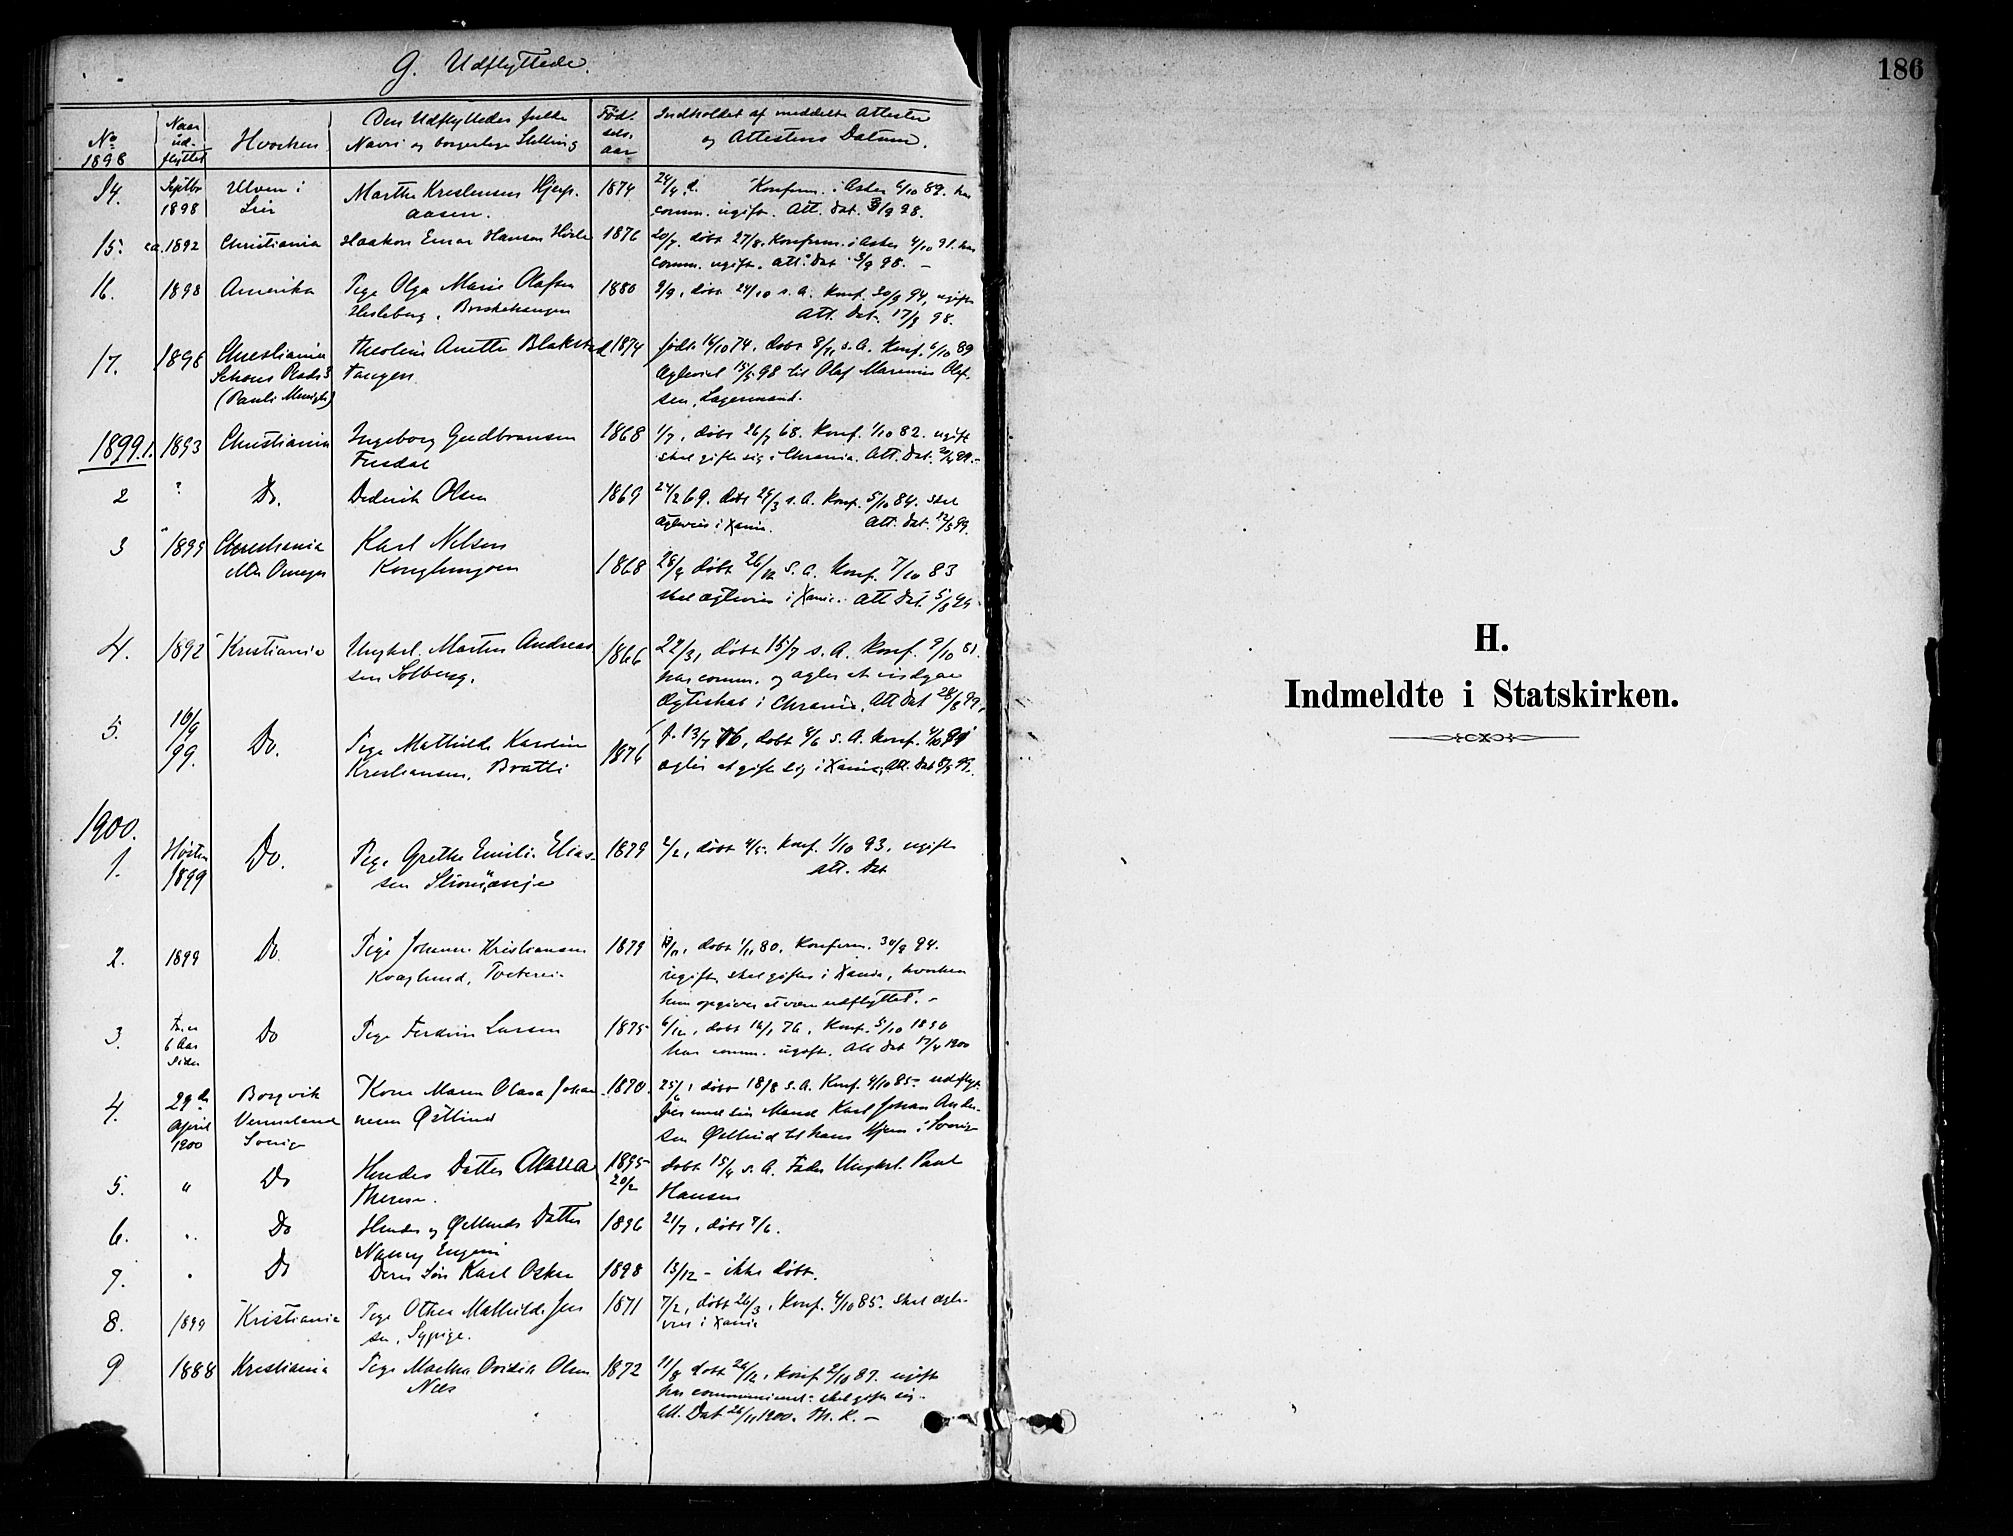 G. Udflyttede.
No 1898 | Naar ud-flyttet | Hvorhen | Den Udflyttedes fulde Navn og borgerlige Stilling | Fød-sels-aar | Indholdet af meddelte Attester og Attestens Datum.
14. | Septbr 1898 | Ulven i Lier | Marthe Kristensen | 1874 | 24/4 Konfirm. i Asker 6/10 89. har
aasen. | comm. ugift. Att. dat. 3/9 98.
15. | ca. 1892 | Christiania | Haakon Einar Hansen | 1876 | 20/7. døbt 27/8. Konfirm. i Asker 4/10 91. har
comm. ugift. Att. Dat. 3/9 98. –
16. | 1898 | Amerika | Pige Olga Marie Olafsen | 1880 | 9/9, døbt 24/10 s. A. Konf. 30/9 94, ugift
Att. Dat. 17/9 98.
17. | 1898 | Christiania | Theoline Anette Blakstad | 1874 | født 16/10 74, døbt 8/11 s. A. Konf. 6/10 89
Schous Plads 3 | Tangen | til Olaf Marinius Olaf-
(Pauli Menighed) | sen, Lagermand.
1899. 1. | 1893 | Christiania | Ingeborg Gudbransen | 1868 | 1/7, døbt 26/7 68. Konf. 1/10 82. ugift
skal gifte sig i Chrania. Att. Dat.
2 | ? | Do. | Diderik Olsen | 1869 | 24/2 69. døbt 29/3 s. A. Konf. 5/10 84. skal
i Xania. Att. Dat. 12/5 99.
3 | 1899 | Christiania | Karl Nilsen | 1868 | døbt 26/12 s. A. Konf. 7/10 83
eller Omegn | Konglungen | skal ægtevies i Xania. Att Dat. 5/8 99
4. | 1892 | Kristiania | Ungkrl. Martin Andreas | 1866 | døbt 15/7 s. A. Konf. 9/10 81.
sen Solberg. | har comm. og agter at indgaa
Ægteskab i Chrania, Att Dat 28/8 99.
5. | 16/9 99. | Do. | Pige Mathilde Karoline | 1876 | f. 13/4 76, døbt 4/6 s. A. Konf. 4/10 91
Kristiansen, Bratli | agter at gifte sig i Xania, Att. Dat
1900.
1. | Høsten 1899 | Do. | Pige Grethe Emilie Elias- | 1879 | 2/2, døbt 4/5. Konf. 1/10 93, ugift
sen | Att. Dat
2. | 1899 | Do. | Pige Johanne Kristiansen | 1879 | døbt 1/11 80. Konfirm. 30/9 94.
ugift, skal giftes i Xania, hvorhen
hun opgiver at være udflyttet. –
3. | 6 Aar siden | Do | Pige Larsen | 1875 | 6/12, døbt 16/1 76, Konf. 5/10 1890
har comm. ugift. Att Dat 17/4 1900
4. | 29de April 1900 | Borgvik Vermeland Sverige | Kone Maren Olava Johan- | 1870. | 25/6, døbt 18/8 s. A. Konf. 4/10 85 – udflyt-
nesen Østlind | ter med sin Mand Karl Johan Ander-
sen Østlind til hans Hjem i Sverige
5. | „ | Do | Hendes Datter | 1895 20/2 | døbt 15/4 s. A. Fader Ungkrl. Paul
Therese. | Hansen
6. | „ | Do | Hendes og Østlinds Datter | 1896 | døbt 7/6.
Nancy Eugenie
7. | „ | Do | Deres Søn Karl Oskar | 1898 | 13/12 – ikke døbt.
8. | 1899 | Kristiania | Pige Othea Mathilde Jen | 1871 | 7/2, døbt 26/3, Konf. 4/10 85. skal ægte-
sen, Sypige. | vies i Xania
9 | 1888 | Kristiania | Pige Martha Ovidia Olsen | 1872 | 11/8 døbt 26/12, Konf. 2/10 87. ugift
Næs | har communiceret – skal gifte sig.
Att. Dat 26/11 1900. Th. K. –
186
H.
Indmeldte i Statskirken.